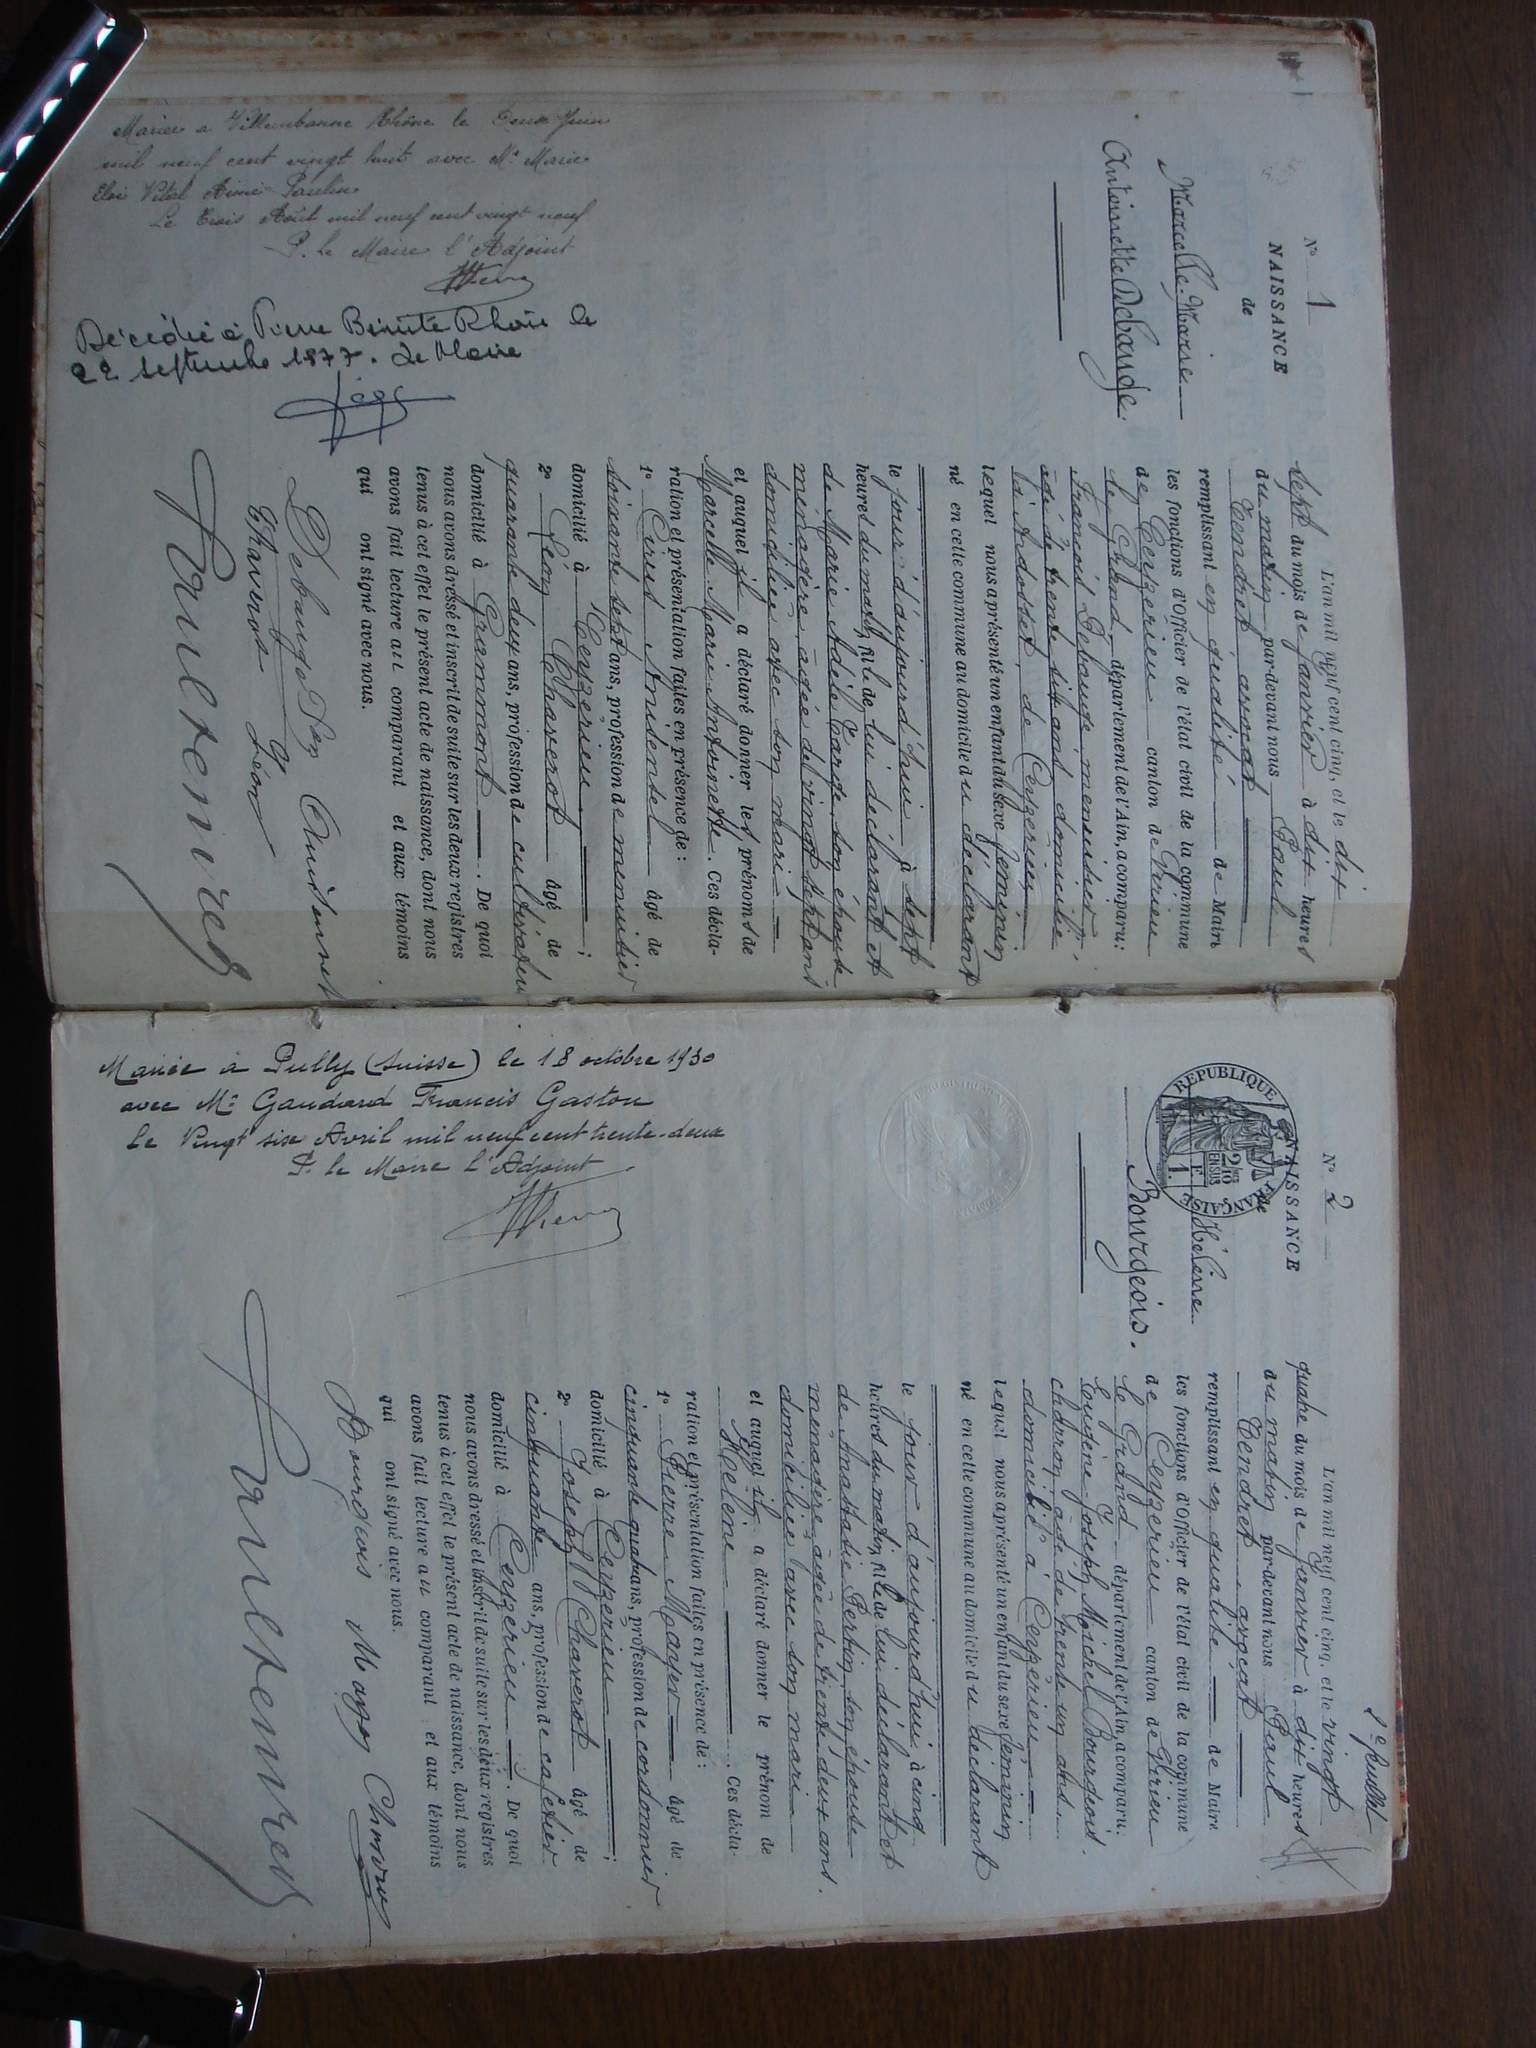 N° 1
NAISSANCE
de
Marcelle-Marie
Antoinette Debauge.
L'an mil neuf cent cinq, et le dix
sept du mois de janvier à dix heures
du matin par-devant nous Paul
Tendret, avocat
remplissant en qualité de Maire
les fonctions d'Officier de l'état civil de la commune
de Ceyzerieu canton de Virieu
le Grand, département de l'Ain, a comparu:
François Debauge menuisier,
agé de trente six ans domicilié
là Ardosset, de Ceyzerieu
lequel nous a présenté un enfant du sexe féminin
né en cette commune au domicile du déclarant
le jour d'aujourd'hui à sept
heures du matin, fille de lui déclarant et
de Marie Adèle Tarde, son épouse
ménagère, agée de vingt sept ans
domiciliée avec son mari
et auquel il a déclaré donner les prénoms de
Marcelle Marie Antoinette. Ces décla-
ration et présentation faites en présence de:
1° Cirus Anidentel âgé de
soixante sept ans, profession de menuisier
domicilié à Ceyzerieu;
2° Léon Chaverot âgé de
quarante deux ans, profession de cultivateur
domicilié à Grammont. De quoi
nous avons dressé et inscrit de suite sur les deux registres
tenus à cet effet le présent acte de naissance, dont nous
avons fait lecture au comparant et aux témoins
qui ont signé avec nous.
Debauge
Chaverot Léon
Paul Tendret
Mariée a Villeurbanne Rhône le Deux Juin
mil neuf cent vingt huit avec Mr Marie
Eloi Vital Aimé Paulin
Le Trois Août mil neuf cent vingt neuf
P. le Maire l'Adjoint
Décédée à Pierre Bénite Rhône le
22 septembre 1977. Le Maire
2e feuillet
N° 2
NAISSANCE
de
Hélène
Bourgeois.
REPUBLIQUE FRANÇAISE
2/10 EN SUS
1 F.
L'an mil neuf cent cinq, et le vingt
quatre du mois de janvier à dix heures
du matin par-devant nous Paul
Tendret, avocat
remplissant en qualité de Maire
les fonctions d'Officier de l'état civil de la commune
de Ceyzerieu canton de Virieu
le Grand département de l'Ain, a comparu:
Eugène Joseph Michel Bourgeois.
charron, agé de trente un ans.
domicilié à Ceyzerieu
lequel nous a présenté un enfant du sexe féminin
né en cette commune au domicile du déclarant
le jour d'aujourd'hui à cinq
heures du matin, fille de lui déclarant et
de Anastasie Pertin, son épouse
ménagère agée de trente deux ans.
domiciliée avec son mari
et auquel il a déclaré donner le prénom de
Hélène. Ces décla-
ration et présentation faites en présence de:
1° Pierre Mayer âgé de
cinquante quatre ans, profession de cordonnier
domicilié à Ceyzerieu;
2° Joseph Chaverot âgé de
cinquante ans, profession de cafetier
domicilié à Ceyzerieu. De quoi
nous avons dressé et inscrit de suite sur les deux registres
tenus à cet effet le présent acte de naissance, dont nous
avons fait lecture au comparant et aux témoins
qui ont signé avec nous.
Bourgeois Mayer
Paul Tendret
Mariée à Pully (Suisse) le 18 octobre 1930
avec Mr Gaudard Francis Gaston
le Vingt six Avril mil neuf cent trente-deux
P. le Maire l'Adjoint